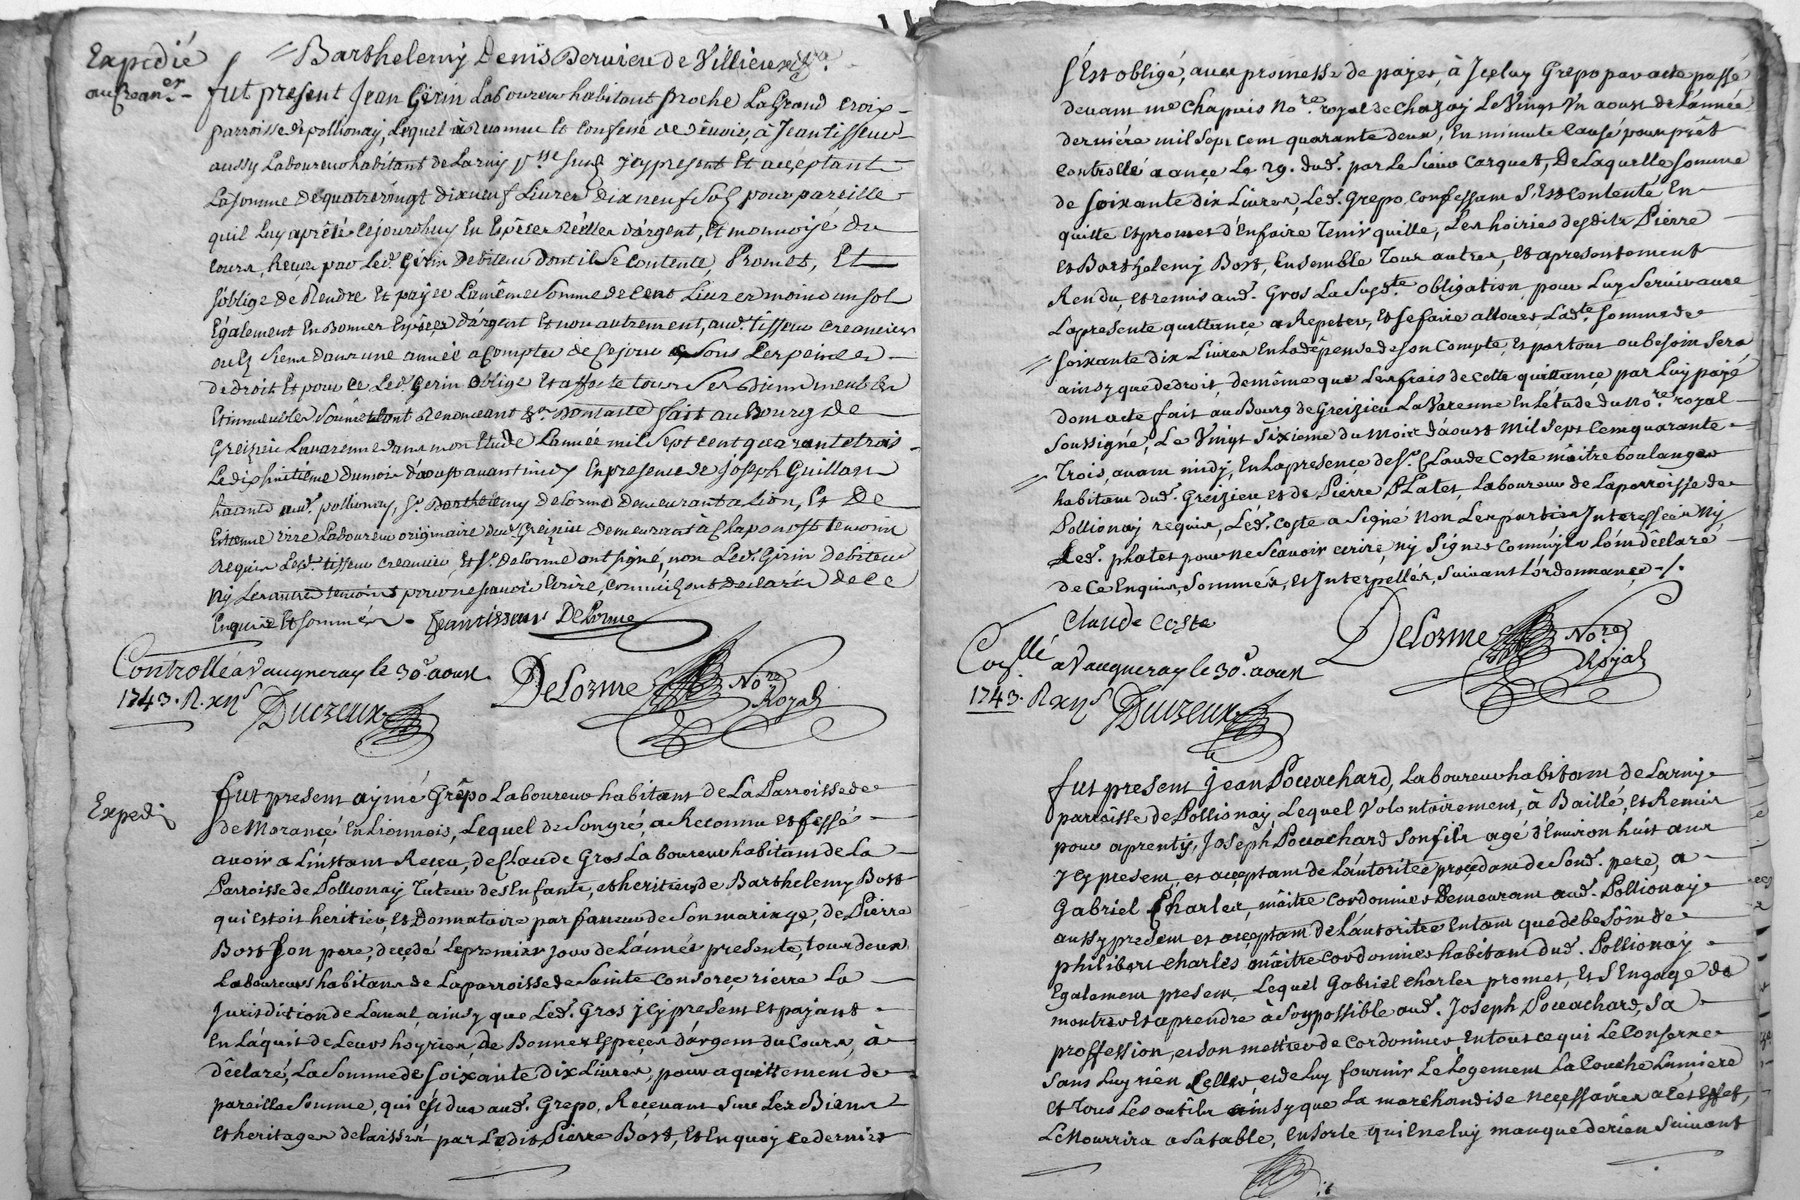 Expedié
au crean.er
Barthelemy Denis Dervieu de Villieu
fut present Jean Girin Laboureur habitant proche La Grand Croix
parroisse de pollionay, Lequel à Reconnu Et Confessé de devoir, à Jean tisseur
aussy Laboureur habitant de Larny jcy present Et acceptant
La somme de quatrevingt dixneuf Livres dixneuf sols pour pareille
quil Luy a prêté cejourdhuy En Espèces Réelles d'argent, Et monnoye du
cours, Reçue par Led. Girin Debiteur dont il se contente, Promet, Et
s'oblige de Rendre Et payer La même somme de Cent Livres moins un sol
Egalement En Bonnes Espèces d'argent Et non autrement, aud. tisseur creancier
ou Es Siens dans une année a compter de Cejour sous Les peines
de droit Et pour ce Led. Gerin oblige Et affecte tous Ses Biens meubles
Et immeubles Renonceant &a. Dont acte fait au Bourg de
Greizieu Lavarenne dans mon Etude L'année mil sept cent quarante trois
Le dix huitième du mois d'aoust avant midy En presence de Joseph Guillard
habitant aud. pollionay, Sr. Barthelemy Delorme demeurant a Lion, Et De
Estienne Laboureur originaire dud. Greizieu demeurant à Chaponost temoins
Requis Led. tisseur creancier, Et Sr. Delorme ont signé, non Led. Girin debiteur
Ny Les autres temoins pour ne sçavoir Ecrire, comm'ils ont declaré de ce
Enquis Et sommés. Jean tisseur Delorme
Controllé à Vaugneray le 30e. aoust
1743. R. xn s
Ducreux
Delorme No.re
Royal
Expedi
fut present aymé Grêpo Laboureur habitant de La Parroisse de
de Morancé En Lionnois, Lequel de son gré, a Reconnu et fessé
avoir a Linstant Reçeu, de Claude Gros Laboureur habitant de La
Parroisse de Pollionay Tuteur des Enfants, et heritiers de Barthelemy Bost
qui estoit heritier, Et Donnataire par faveur de Son mariage, de Pierre
Bost son pere, deçedé Le premier jour de L'année presente, tous deux
Laboureurs habitans de La parroisse de Sainte Consorce rierre La
Jurisdiction de Laval, ainsy que Led. Gros jcy present Et payant
En L'aquit de Leurs hoyries, de Bonnes Espeçes d'argent du Cours, à
dêclaré, La Somme de soixante dix Livres, pour aquittement de
pareille Somme, qui Est due aud. Grepo, Recevant Sur Les Biens
Et heritages delaissés par Ledit Pierre Bost, Et En quoy ce dernier
s'Est obligé, avec promesse de payer, à Jceluy Grepo par acte passé
devant me Chapuis No.re royal de Chazay Le Vingt Vn aoust de L'année
derniére mil sept cent quarante deux, En minute Causé pour prêt
Controllé a ance Le 29. dud. par Le Sieur Carquet, De Laquelle somme
de soixante dix Livres, Led. Grepo, Confessant S'Est Contenté En
quitte Et promet d'En faire Tenir quitte, Les hoiries desdits Pierre
Et Barthelemy Bost, Ensemble Tous autres, Et a presentement
Rendu, Et remis aud. Gros La Susd.te obligation, pour Luy Servir avec
La presente quittançe a Repeter, Et se faire allouer Lad.te somme de
soixante dix Livres En La dépense de son Compte, Et partout ou besoin Sera
ainsy que de droit, de même que Les frais de cette quittançe, par Luy payé
dont acte fait au Bourg de Greizieu La Varenne En Létude du No.re royal
soussigné, Le Vingt Sixieme du mois d'aoust Mil Sept Cent quarante
Trois, avant midy, En La presence de Sr. Claude Coste maitre boulanger
habitant dud. Greizieu et de Pierre Plates, Laboureur de La parroisse de
Pollionay requis, Led. Coste a Signé Non Les parties Interessées Ny
Led. plates pour ne Scavoir ecrire ny Signer Comm'jls L'ont declaré
de Ce Enquis, Sommés, et Interpellés, Suivant L'ordonnance ./.
Claude Coste
Delorme No.re
Royal
Con.llé a Vaugneray le 30e. aoust
1743. R xn s
Ducreux
fut present Jean Pouachard, Laboureur habitant de Larny
parroisse de Pollionay, Lequel Volontairement, à Baillé, Et Remis
pour aprenty, Joseph Pouachard Son fils agé d'Environ huit ans
jcy present, et acceptant de L'autoritée procedant de Sond. pere, a
Gabriel Charles, maître Cordonnier Demeurant aud. Pollionay
aussy present et acceptant de L'autoritée Entant que de besoin de
philibert Charles maître cordonnier habitant dud. Pollionay
Egalement present, Lequel Gabriel Charles promet, Et S'Engage de
montrer Et aprendre à Son possible aud. Joseph Pouachard, Sa
proffession, et Son mettier de Cordonnier, En tout ce qui Le Conserne
Sans Luy rien Celler, et de Luy fournir Le Logement La Couche Lumiere
Et Tous Les outils ainsy que La marchandise neçessaires a Cet Effet,
Le Nourrira a Sa table, En Sorte qu'il ne Luy manque de rien Suivant